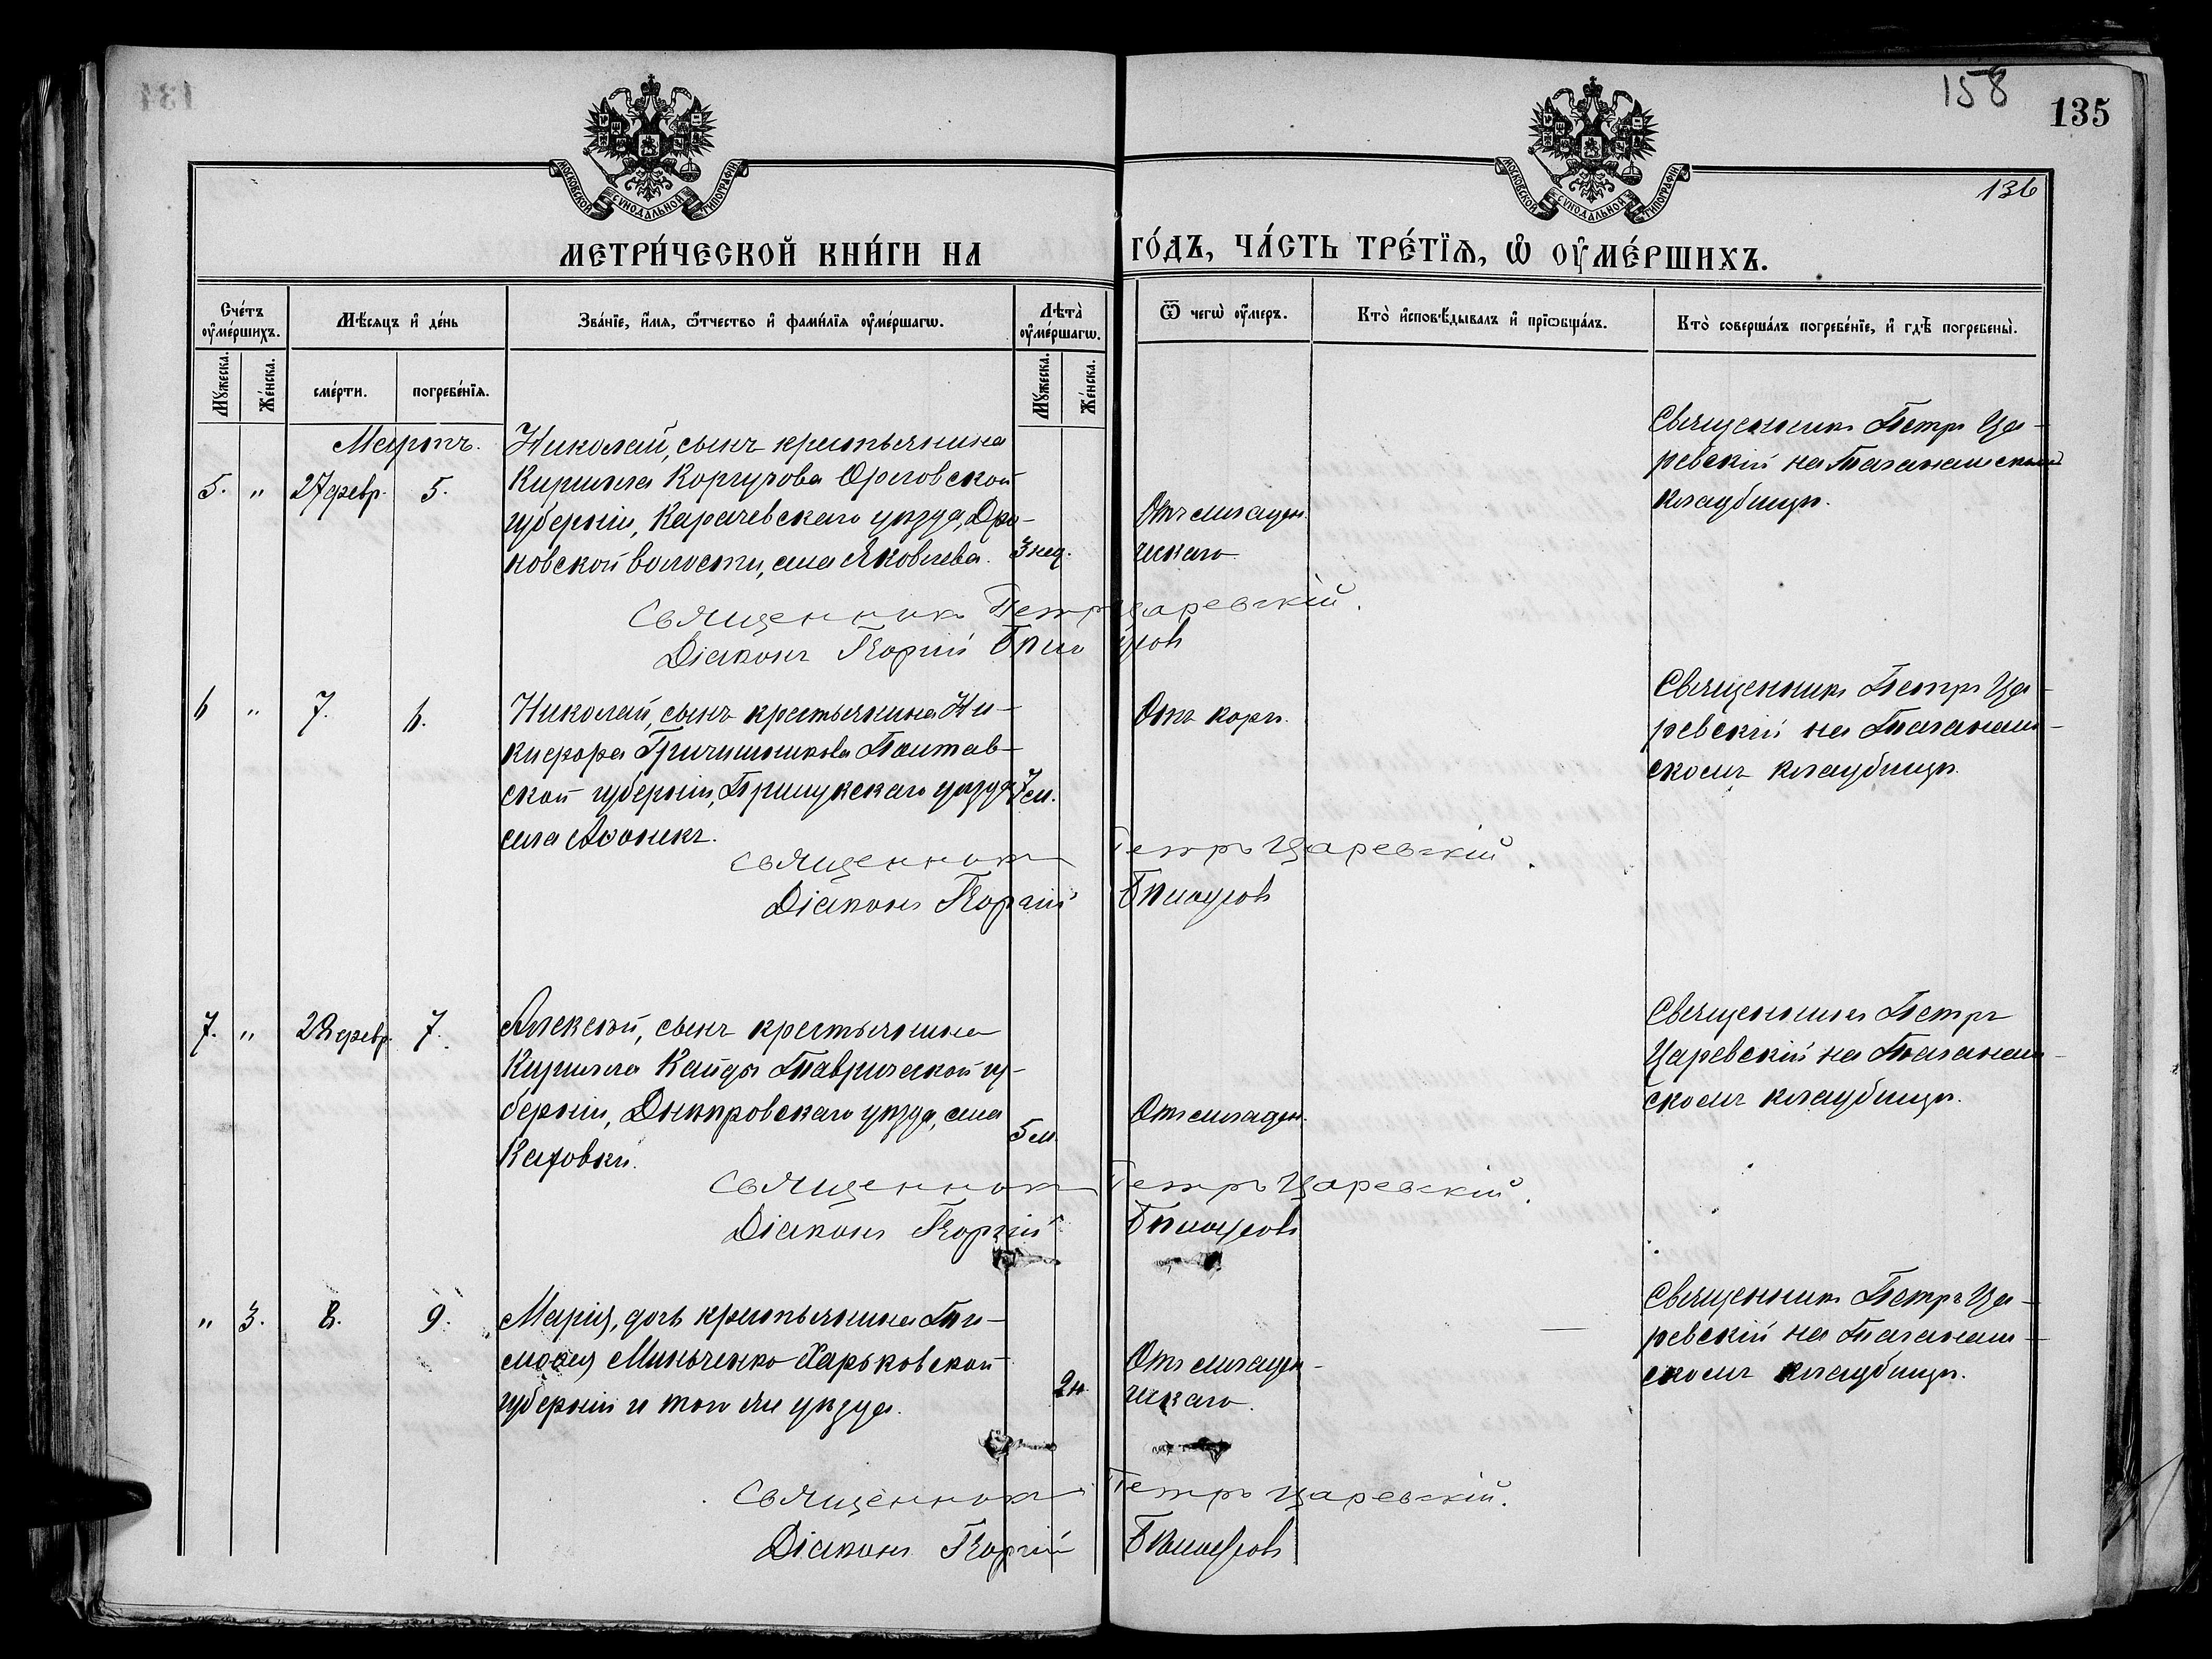 158
135
136
МОСКОВСКОЙ СѴНОДАЛЬНОЙ ТИПОГРАФІИ
МОСКОВСКОЙ СѴНОДАЛЬНОЙ ТИПОГРАФІИ
МЕТРИ́ЧЕСКОЙ КНИ́ГИ НА
ГО́ДЪ, ЧА́СТЬ ТРЕ́ТЇѦ, Ѡ҆ ОУ҆МЕ́РШИХЪ.
Сче́тъ оу҆ме́ршихъ.
Мꙋ́жеска.
Же́нска.
Мѣ́сяцъ и҆ де́нь
сме́рти.
погребе́нїѧ.
Зва́нїе, и҆́мѧ, ѻ҆́тчество и҆ фами́лїѧ оу҆ме́ршагѡ.
Лѣта̀ оу҆ме́ршагѡ.
Мꙋ́жеска.
Же́нска.
Ѿ чегѡ̀ оу҆́меръ.
Кто̀ и҆сповѣ́дывалъ и҆ прїѡбща́лъ.
Кто̀ соверша́лъ погребе́нїе, и҆ гдѣ̀ погребены̀.
Мартъ.
5. " 27 февр. 5.
Николай, сынъ крестьянина
Кирилла Орловской
губерніи, Карачевскаго уѣзда, Дро-
новской волости, села Яковлева.
3 нед.
Отъ младен.
ческаго
Священникъ Петръ Ца-
ревскій на
кладбищѣ.
Священникъ Петръ Царевскій.
Діаконъ Георгій
6 " 7. 6.
Николай, сынъ крестьянина Ни-
кифора Полтав-
ской губерніи, Прилукскаго уѣзда
села
7 м.
Отъ кори.
Священникъ Петръ Ца-
ревскій на
скомъ кладбищѣ.
Священникъ Петръ Царевскій.
Діаконъ Георгій
7. " 28 февр. 7.
Алексѣй, сынъ крестьянина
Кирилла Кайды Таврической гу-
берніи, Днѣпровскаго уѣзда, села
Каховки.
5 м.
Отъ младен.
Священникъ Петръ
Царевскій на
скомъ кладбищѣ.
Священникъ Петръ Царевскій.
Діаконъ Георгій
" 3. 8. 9.
Марія, дочь крестьянина Ти-
моѳея Минченко Харьковской
губерніи и того же уѣзда.
2 н.
Отъ младен-
ческаго.
Священникъ Петръ Ца-
ревскій на
скомъ кладбищѣ.
Священникъ Петръ Царевскій.
Діаконъ Георгій